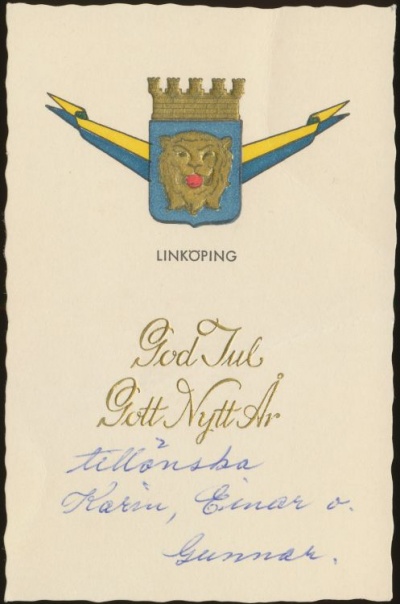 LINKÖPING
God Jul
Gott Nytt År
tillönska
Karin, Einar o.
Gunnar.